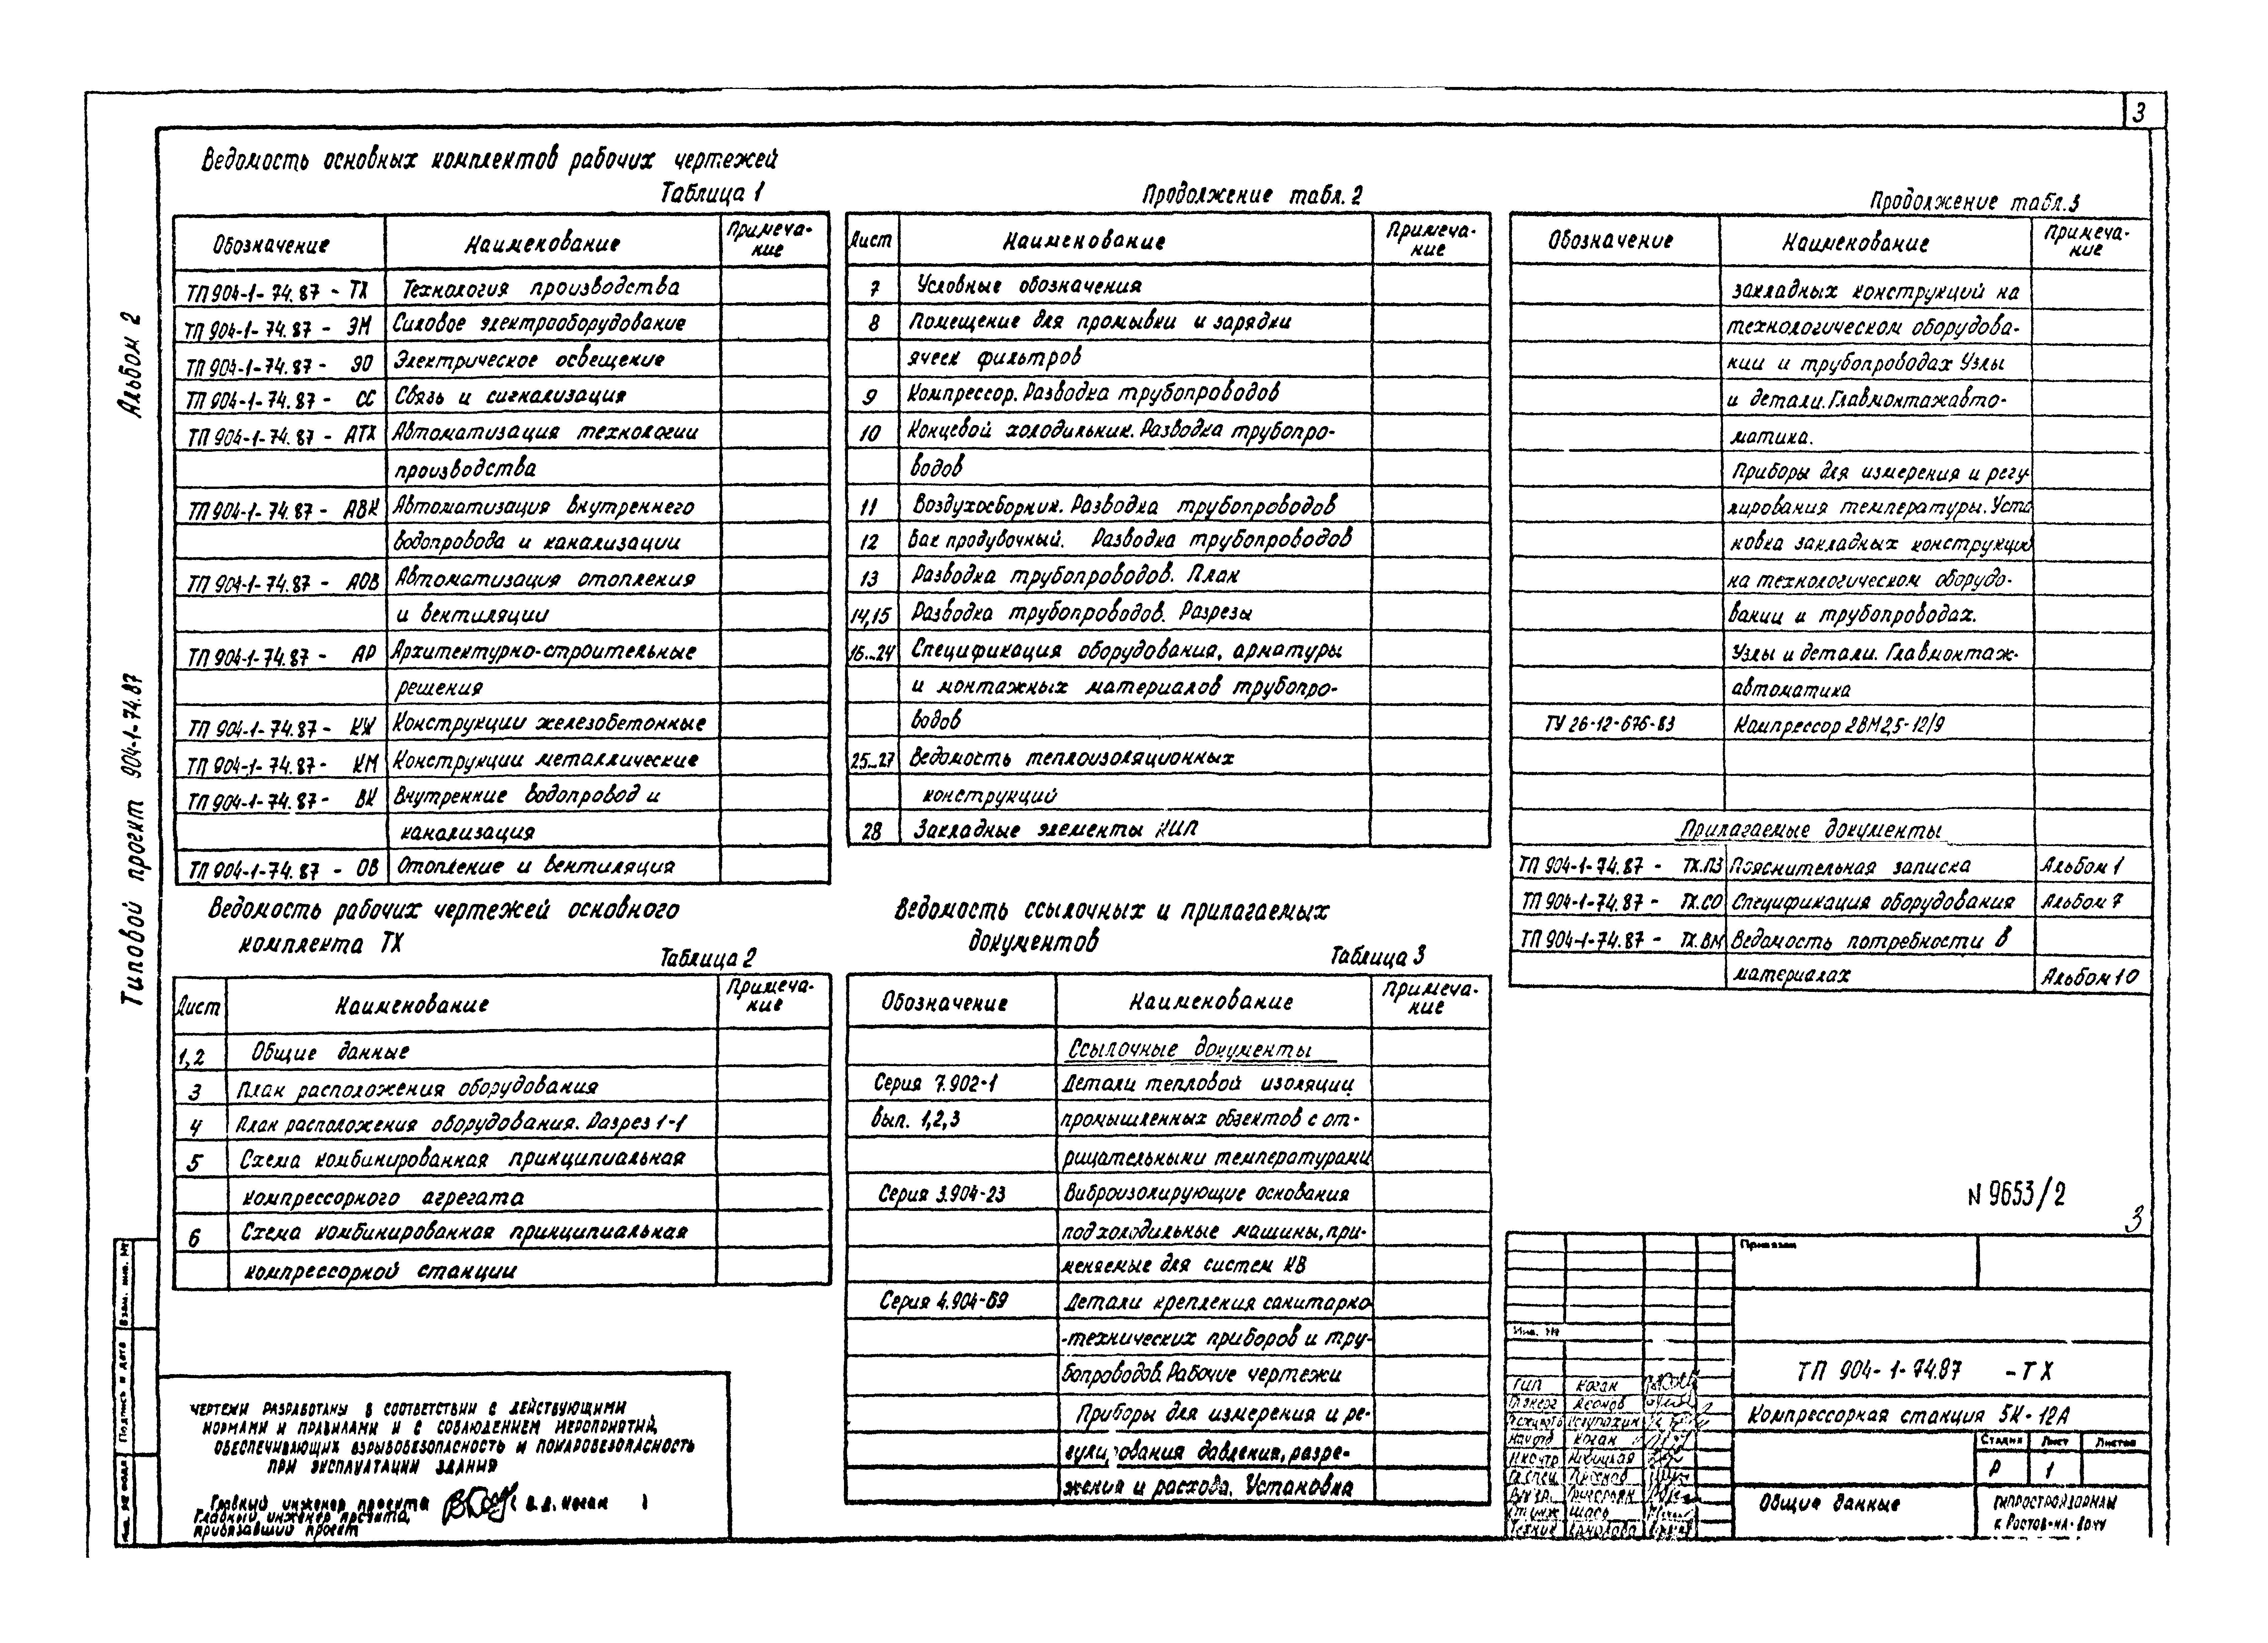 3
Альбом 2
Типовой проект 904-1-74.87
Ведомость основных комплектов рабочих чертежей
Таблица 1
Обозначение Наименование Примеча-
ние
ТП 904-1-74.87 - ТХ Технология производства
ТП 904-1-74.87 - ЭМ Силовое электрооборудование
ТП 904-1-74.87 - ЭО Электрическое освещение
ТП 904-1-74.87 - СС Связь и сигнализация
ТП 904-1-74.87 - АТХ Автоматизация технологии
производства
ТП 904-1-74.87 - АВК Автоматизация внутреннего
водопровода и канализации
ТП 904-1-74.87 - АОВ Автоматизация отопления
и вентиляции
ТП 904-1-74.87 - АР Архитектурно-строительные
решения
ТП 904-1-74.87 - КЖ Конструкции железобетонные
ТП 904-1-74.87 - КМ Конструкции металлические
ТП 904-1-74.87 - ВК Внутренние водопровод и
канализация
ТП 904-1-74.87 - ОВ Отопление и вентиляция
Ведомость рабочих чертежей основного
комплекта ТХ
Таблица 2
Лист Наименование Примеча-
ние
1,2 Общие данные
3 План расположения оборудования
4 План расположения оборудования. Разрез 1-1
5 Схема комбинированная принципиальная
компрессорного агрегата
6 Схема комбинированная принципиальная
компрессорной станции
Чертежи разработаны в соответствии с действующими
нормами и правилами и с соблюдением мероприятий,
обеспечивающих взрывобезопасность и пожаробезопасность
при эксплуатации здания
Главный инженер проекта В.Д. Коган
Главный инженер проекта,
привязавший проект
Продолжение табл. 2
Лист Наименование Примеча-
ние
7 Условные обозначения
8 Помещение для промывки и зарядки
ячеек фильтров
9 Компрессор. Разводка трубопроводов
10 Концевой холодильник. Разводка трубопро-
водов
11 Воздухосборник. Разводка трубопроводов
12 Бак продувочный. Разводка трубопроводов
13 Разводка трубопроводов. План
14,15 Разводка трубопроводов. Разрезы
16...24 Спецификация оборудования, арматуры
и монтажных материалов трубопро-
водов
25...27 Ведомость теплоизоляционных
конструкций
28 Закладные элементы КИП
Ведомость ссылочных и прилагаемых
документов
Таблица 3
Обозначение Наименование Примеча-
ние
Ссылочные документы
Серия 7.902-1 Детали тепловой изоляции
вып. 1,2,3 промышленных объектов с от-
рицательными температурами
Серия 3.904-23 Виброизолирующие основания
под холодильные машины, при-
меняемые для систем КВ
Серия 4.904-69 Детали крепления санитарно
-технических приборов и тру-
бопроводов. Рабочие чертежи
Приборы для измерения и ре-
гулирования давления, разре-
жения и расхода. Установка
Продолжение табл.3
Обозначение Наименование Примеча-
ние
закладных конструкций на
технологическом оборудова-
нии и трубопроводах Узлы
и детали. Главмонтажавто-
матика.
Приборы для измерения и регу
лирования температуры. Уста
новка закладных конструкций
на технологическом оборудо-
вании и трубопроводах.
Узлы и детали. Главмонтаж-
автоматика
ТУ 26-12-676-83 Компрессор 2ВМ2,5-12/9
Прилагаемые документы
ТП 904-1-74.87 - ТХ.ПЗ Пояснительная записка Альбом 1
ТП 904-1-74.87 - ТХ.СО Спецификация оборудования Альбом 7
ТП 904-1-74.87 - ТХ.ВМ Ведомость потребности в
материалах Альбом 10
N 9653/2
3
Привязан
Инв. №
ТП 904-1-74.87 -ТХ
Компрессорная станция 5К-12А
Стадия Лист Листов
Р 1
Общие данные
Гипростройдормаш
г. Ростов-на-Дону
ГИП Коган
Нач отд Коган
Н контр
Гл спец
Ст инж
Техник
Взам. инв. №
Подпись и дата
Инв. № подл